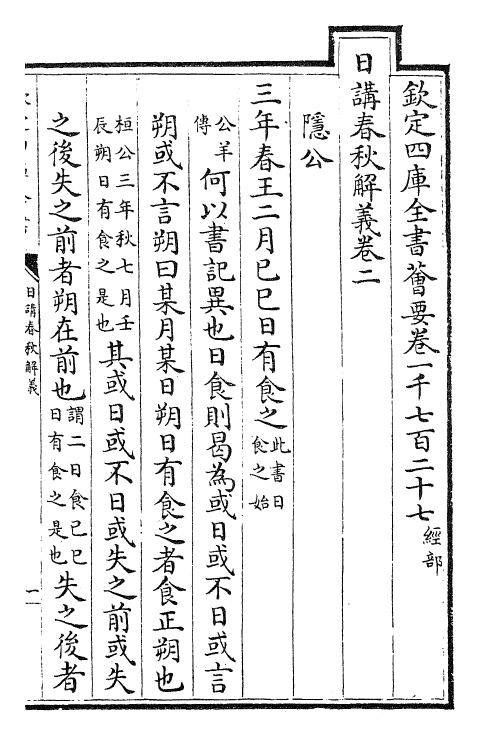 欽定四庫全書薈要卷一千七百二十七 經部
日講春秋解義卷二
隱公
三年春王二月己巳日有食之 此書日食之始
公羊傳 何以書記異也日食則曷為或日或不日或言
朔或不言朔曰某月某日朔日有食之者食正朔也
桓公三年秋七月壬辰朔日有食之是也 其或日或不日或失之前或失
之後失之前者朔在前也 謂二日食己巳日有食之是也 失之後者
日講春秋解義
一